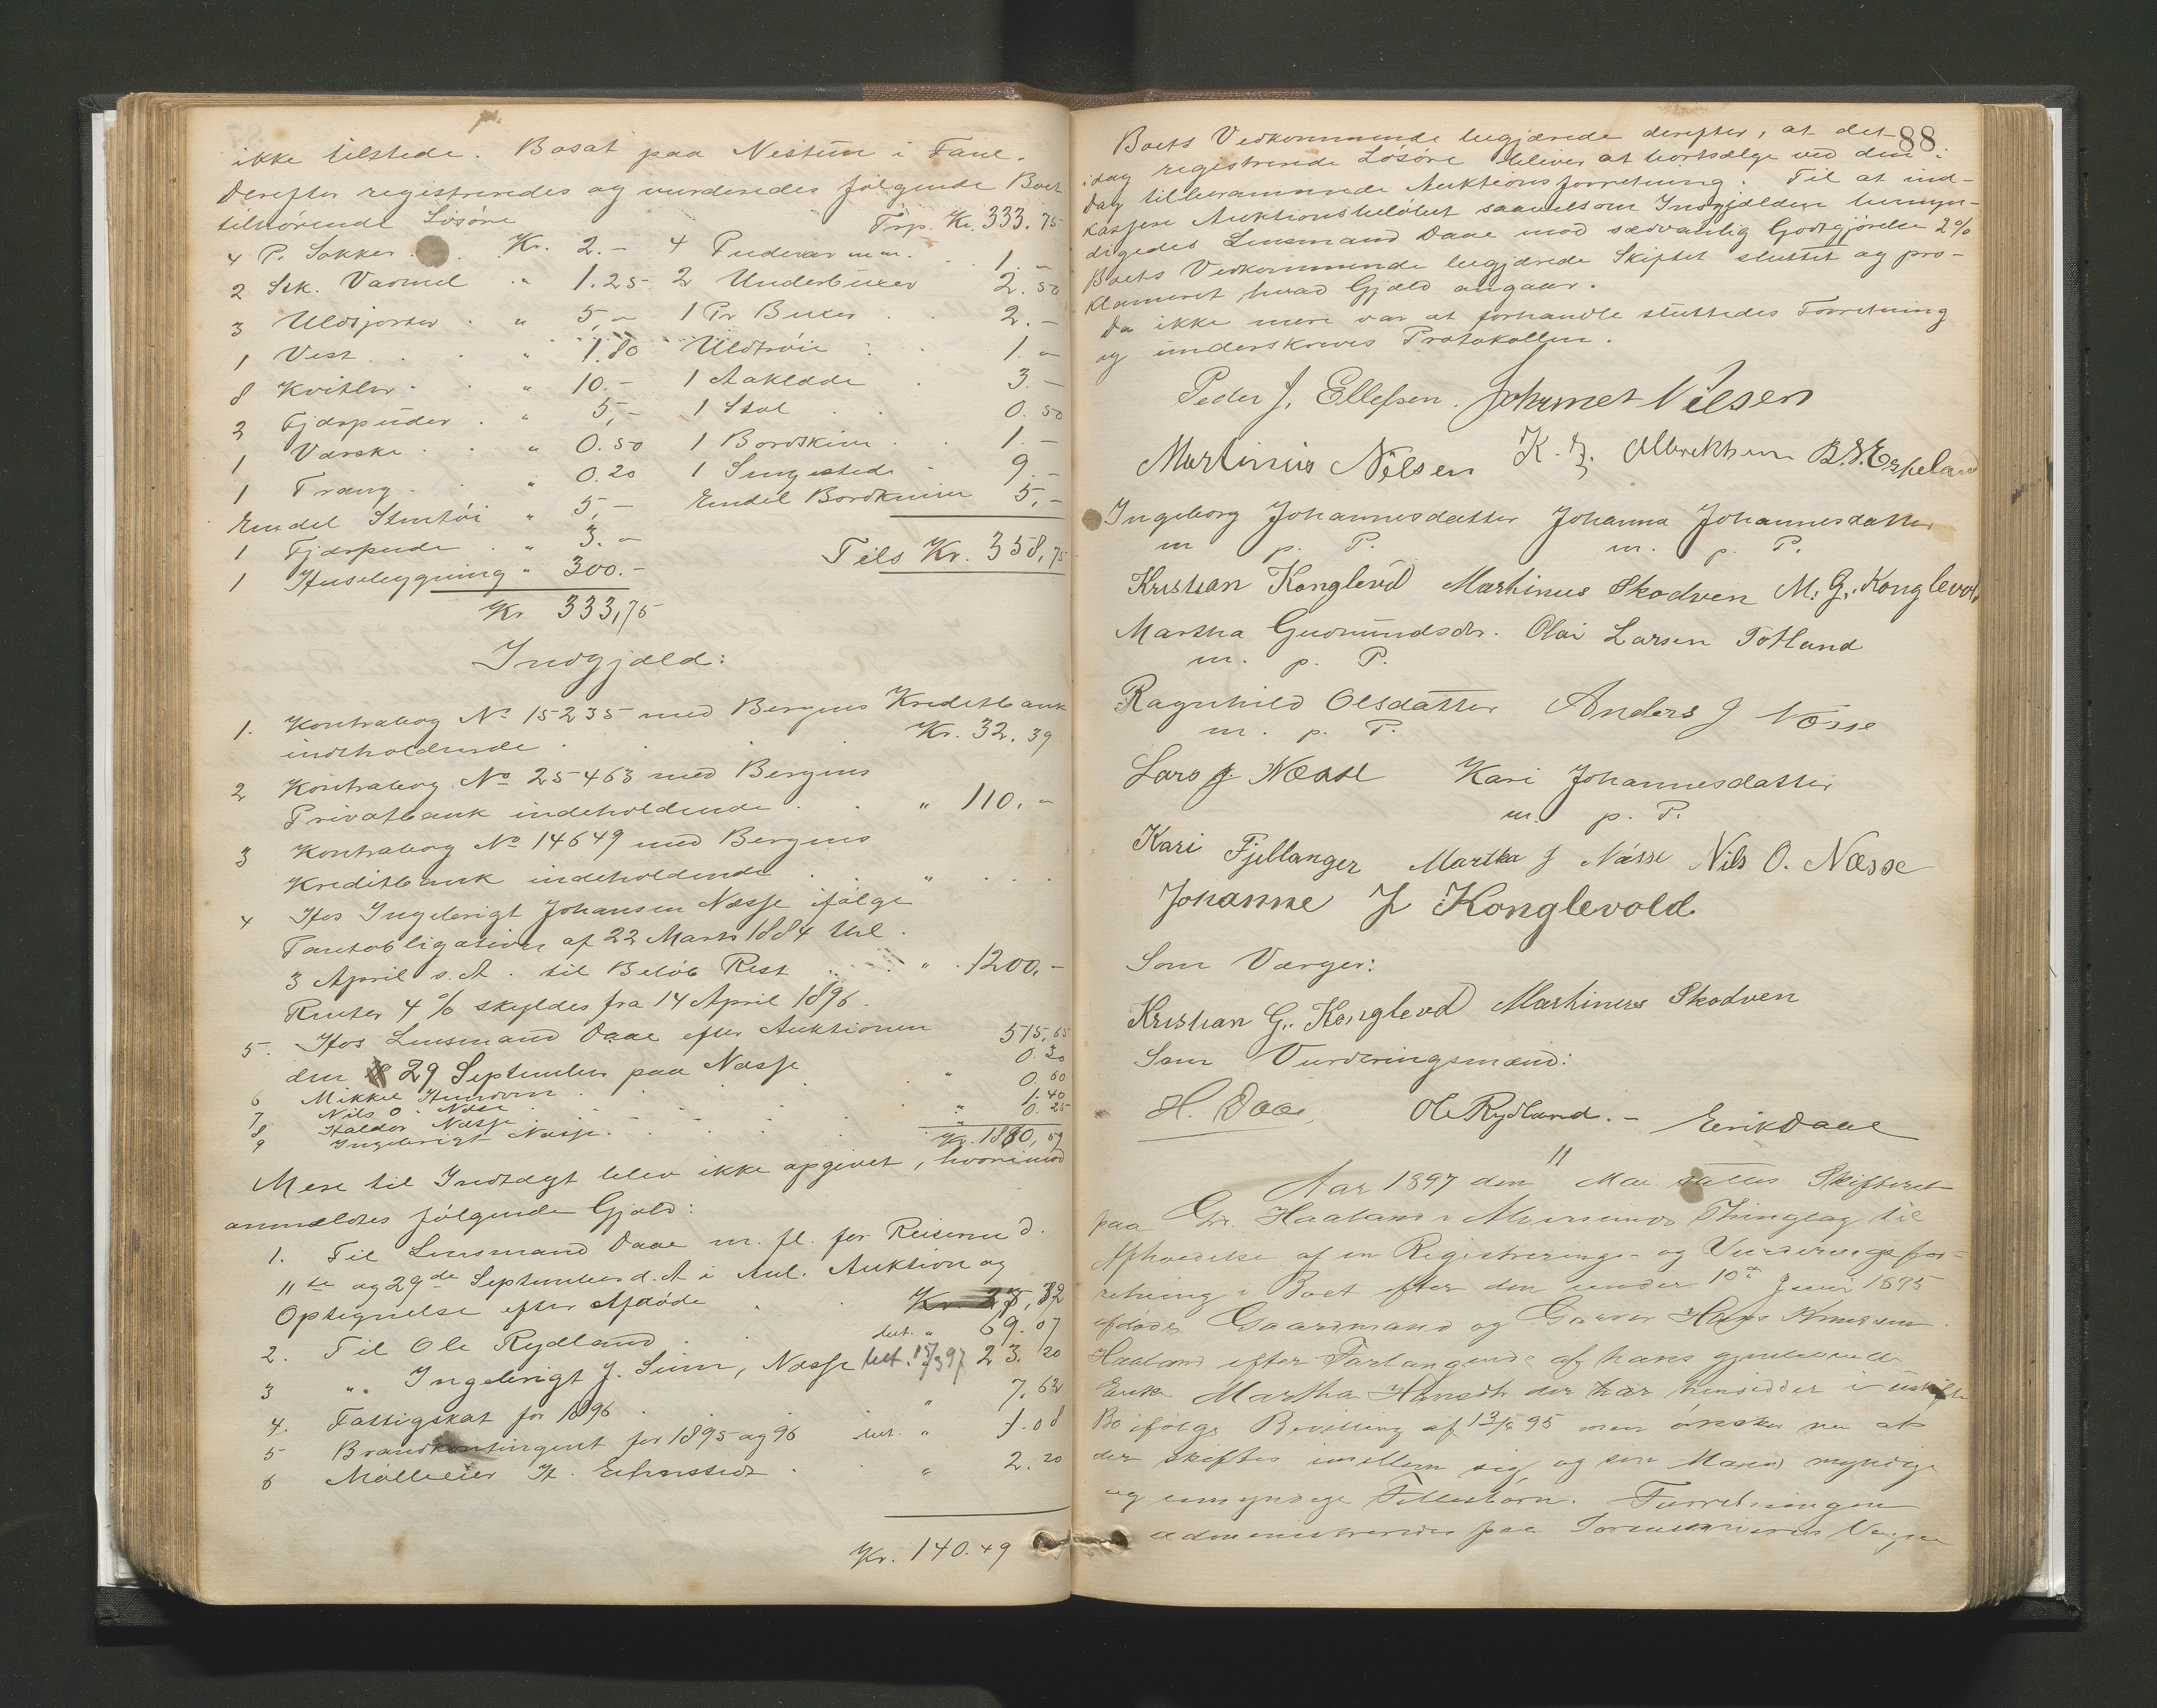 ikke tilstede. Bosat paa Nestun i Fane.
Derefter registreredes og vurderedes følgende Boet
tilhørende Løsøre
Trsp. Kr. 333.75
4 P. Sokker . Kr. 2.- 4 Pudevar m.m. . . 1.-
2 Stk. Vadmel " 1.25 2 Underbuxer 2.50
3 Uldskjorter . " 5,- 1 Pr Buxer . . 2.-
1 Vest . . " 1.80 Uldtrøie . . 1.-
8 Kvitler . . " 10.- 1 Aaklæde . 3.-
2 Fjærpuder . " 5,- 1 Stol . . 0.50
1 Væske . . " 0.50 1 Bordskive . . 1.-
1 Traug . . " 0.20 1 Sengested . 9.-
Endel Stentøi " 5,- Endel Bordkniver 5,-
1 Fjærpude . " 3.- Tils Kr. 358,75
1 Husebygning " 300.-
Kr 333,75
Indgjæld:
1. Kontrabog No 15235 med Bergens Kreditbank
indeholdende . . . . Kr. 32.39
2 Kontrabog No 25463 med Bergens
Privatbank indeholdende . . " 110.-
3 Kontrabog No 14649 med Bergens
Kreditbank indeholdende . . " . . .
4 Hos Ingebrigt Johansen Næsse ifølge
Pantobligation af 22 Marts 1884 thl.
3 April s.A. til Beløb Rest . . " . 1200.-
Renter 4 % skyldes fra 14 April 1896.
5. Hos Lensmand Daae efter Auktionen
den 29 September paa Næsse 515,65
6 Mikkel . . . 0.30
7 Nils O. Næse . . . " 0.60
8 Haldor Næsse . . . 1.40
9 Ingebrigt Næsse . . . " 0.25
Kr. 1880,59
Mere til Indtægt blev ikke opgivet, hvorimod
anmeldtes følgende Gjæld:
1. Til Lensmand Daae m. fl. for Reiserne d.
11te og 29de September d. A i Anl. Auktion og
Optegnelse efter Afdøde . .
2. Til Ole Rydland . . bet. " 69.07
3 " Ingebrigt J. Siim, Næsse bet. 15/3 97 23.20
4. Fattigskat for 1896 . " 7.62
5 Brandkontingent for 1895 og 96 bet. " 1.08
6 Mølleeier H. . " 2.20
Kr. 140.49
88
Boets Vedkommende begjærede derefter, at det
idag registrerede Løsøre bliver at bortsælge ved den i
Dag tilberammede Auktionsforretning. Til at ind-
kassere Auktionsbeløbet saavelsom Indgjælden bemyn-
digedes Lensmand Daae mod sædvanlig Godtgjørelse 2 %
Boets Vedkommende begjærede Skiftet sluttet og pro-
klameret, hvad Gjæld angaar.
Da ikke mere var at forhandle sluttedes Forretning
og underskreves Protokollen.
Peder J. Ellefsen. Johannes Nilsen
Martinius Nilsen K. J. Albrektsen B. S. Espeland
Ingeborg Johannesdatter Johanna Johannesdatter
m p. P. m. p. P.
Kristian Konglevold Martinus Skodven M. G. Konglevold
Martha Gudmundsdtr. Olai Larsen Totland
m. p. P.
Ragnhild Olsdatter Anders J Næsse
m. p. P.
Lars J. Næsse Kari Johannesdatter
m. p. P.
Kari Fjellanger Martha J Næsse Nils O. Næsse
Johanne J Konglevold
Som Værger:
Kristian G. Konglevold Martinus Skodven
Som Vurderingsmænd:
H. Daae, Ole Rydland. - Erik Daae
Aar 1897 den 11 Mai sattes Skifteret
paa Gr. Haaland i Thinglag til
Afholdelse af en Registrerings- og Vurderingsfor-
retning i Boet efter den under 10de Juni 1895
afdøde Gaardmand og Garver Hans Knudsen
Haaland efter Forlangende af hans gjenlevende
Enke Martha Hansdtr der har hensiddet i uskiftet
Bo ifølge Bevilling af 13/6 95 men ønsker nu at
der skiftes imellem sig og sin Mands myndige
og umyndige Fællesbørn. Forretningen
administreredes paa Sorenskriverens Vegne